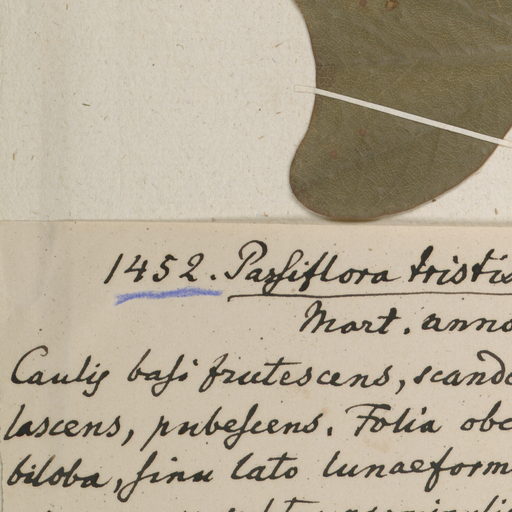 1452. Passiflora tristis
Mart. anno
Caulis basi frutescens, scand
lascens, pubescens. Folia obc
biloba, sinu lato lunaeform